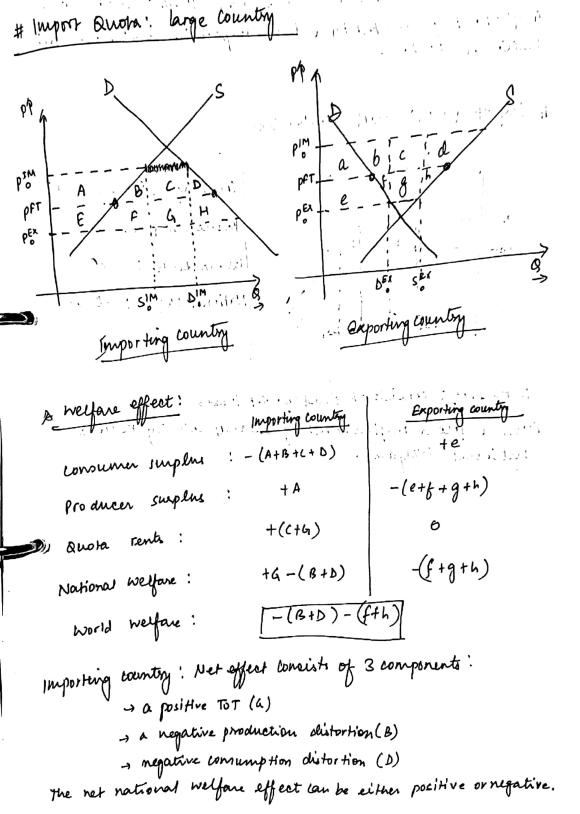 # Import Quota: Large Country
P↑
D
S
P₀^IM
A
B
C
D
P^FT
E
F
G
H
P₀^Ex
S₀^IM
D₀^IM
Q
→
Importing country
P↑
D
S
P₀^IM
a
b
c
d
P^FT
e
f
g
h
P₀^Ex
D₀^Ex
S₀^Ex
Q
→
Exporting country
Welfare effect:
Importing country
Exporting country
Consumer surplus : -(A+B+C+D) +e
Producer surplus : +A -(e+f+g+h)
Quota rents : +(C+G) 0
National welfare : +G-(B+D) -(f+g+h)
World welfare : -(B+D)-(f+h)
Importing country : Net effect consists of 3 components :
→ a positive ToT (G)
→ a negative production distortion (B)
→ negative consumption distortion (D)
The net national welfare effect can be either positive or negative.